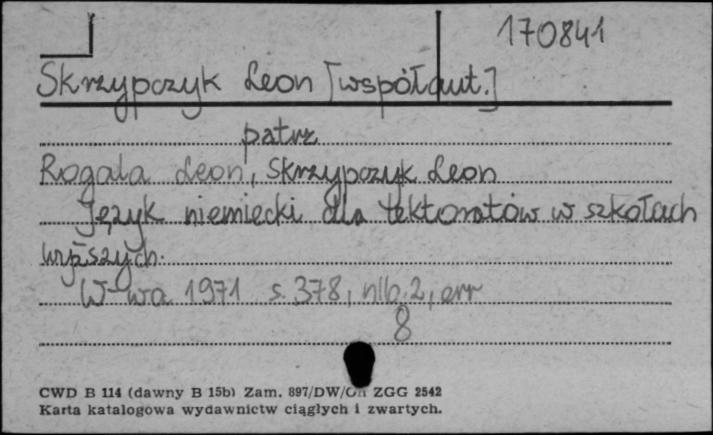 170841
Skrzypczyk Leon [współaut.]
patrz
Rogala Leon, Skrzypczyk Leon
Język niemiecki dla lektoratów w szkołach
wyższych.
W-wa 1971 s. 378, nlb. 2, err
8
CWD B 114 (dawny B 15b) Zam. 897/DW/ ZGG 2542
Karta katalogowa wydawnictw ciągłych i zwartych.